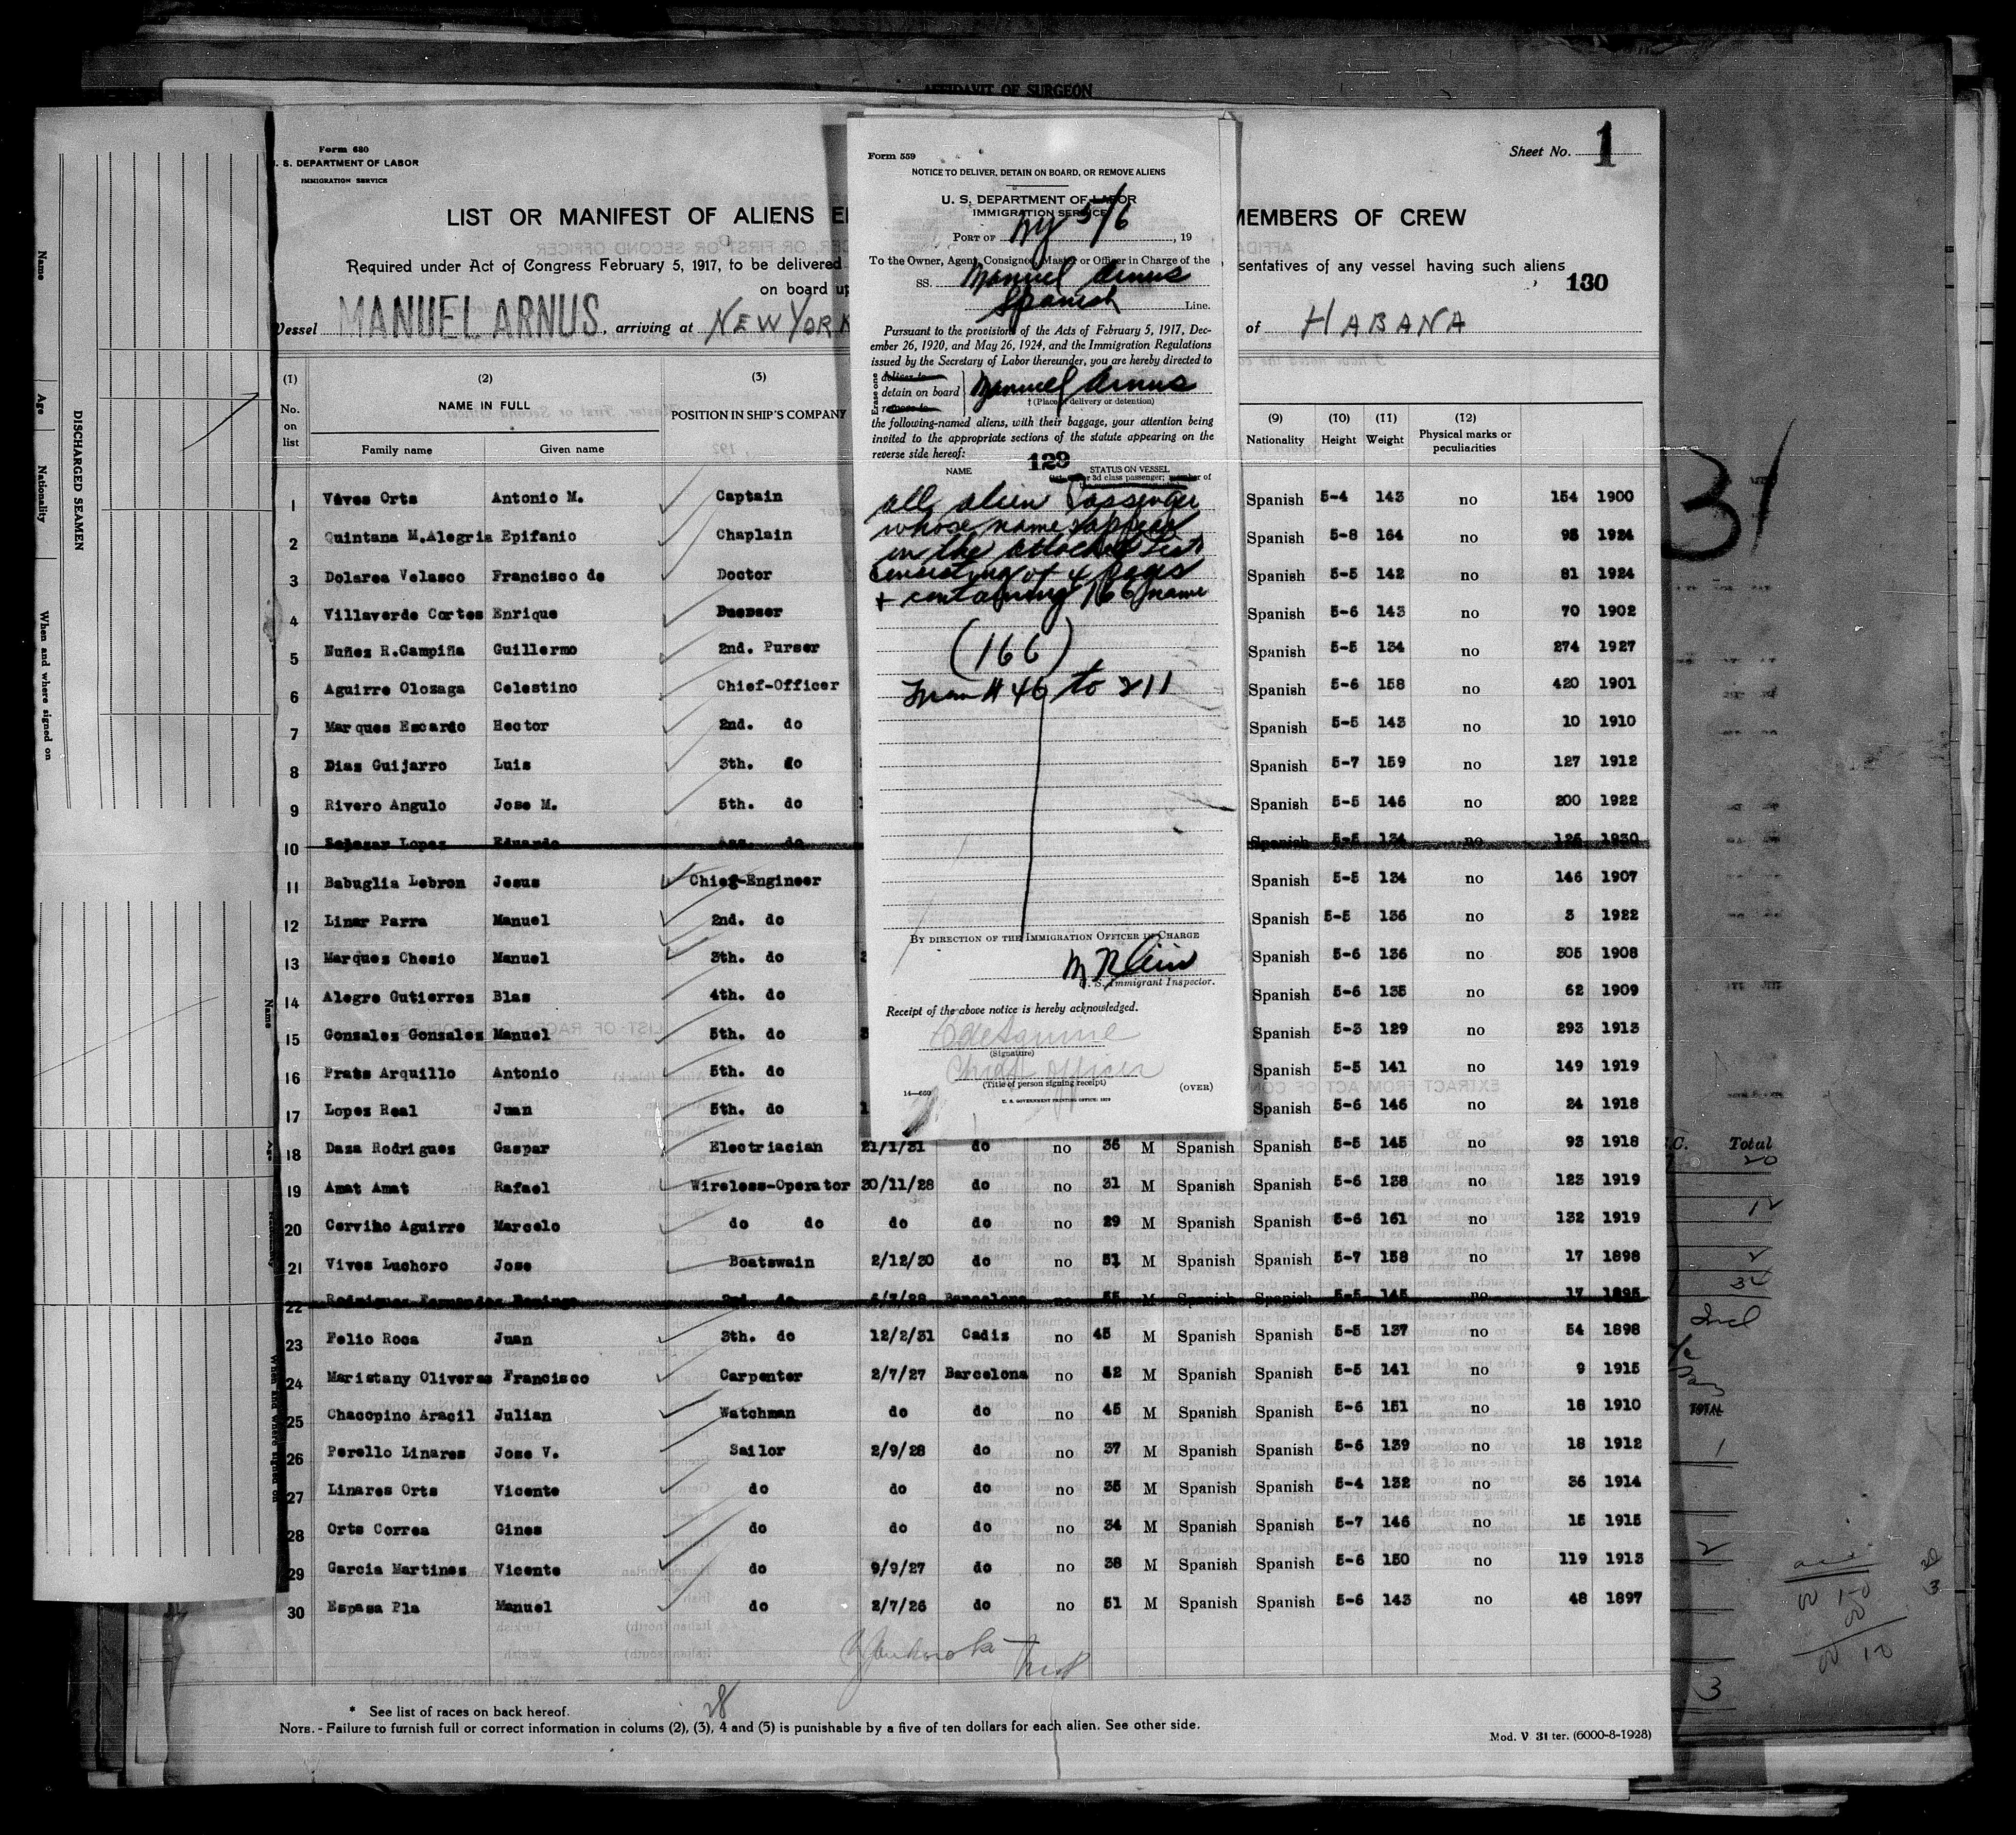 AFFIDAVIT OF SURGEON
Form 680
U. S. DEPARTMENT OF LABOR
IMMIGRATION SERVICE
Sheet No. 1
LIST OR MANIFEST OF ALIENS E
MEMBERS OF CREW
Required under Act of Congress February 5, 1917, to be delivered
sentatives of any vessel having such aliens
on board up
130
Vessel MANUEL ARNUS, arriving at NEW YORK
of HABANA
(1) (2) (3) (9) (10) (11) (12)
No. on list NAME IN FULL POSITION IN SHIP'S COMPANY Nationality Height Weight Physical marks or peculiarities
Family name Given name
1 Vives Orts Antonio M. Captain Spanish 5-4 143 no 154 1900
2 Quintana M.Alegria Epifanio Chaplain Spanish 5-8 164 no 95 1924
3 Dolarea Velasco Francisco de Doctor Spanish 5-5 142 no 81 1924
4 Villaverde Cortes Enrique Spanish 5-6 143 no 70 1902
5 Nuñez R.Campiña Guillermo 2nd. Purser Spanish 5-5 134 no 274 1927
6 Aguirre Olozaga Celestino Chief-Officer Spanish 5-6 158 no 420 1901
7 Marques Escardo Hector 2nd. do Spanish 5-5 143 no 10 1910
8 Dias Guijarro Luis 3th. do Spanish 5-7 159 no 127 1912
9 Rivero Angulo Jose M. 5th. do Spanish 5-5 146 no 200 1922
10 Salazar Lopez Eduardo Agg. do Spanish 5-5 134 no 126 1930
11 Babuglia Lebron Jesus Chief-Engineer Spanish 5-5 134 no 146 1907
12 Linar Parra Manuel 2nd. do Spanish 5-5 136 no 3 1922
13 Marques Chesio Manuel 3th. do Spanish 5-6 136 no 305 1908
14 Alegre Gutierrez Blas 4th. do Spanish 5-6 135 no 62 1909
15 Gonzales Gonzales Manuel 5th. do Spanish 5-3 129 no 293 1913
16 Prats Arquillo Antonio 5th. do Spanish 5-5 141 no 149 1919
17 Lopez Real Juan 5th. do Spanish 5-6 146 no 24 1918
18 Daza Rodriguez Gaspar Electriacian 21/1/31 do no 36 M Spanish Spanish 5-5 145 no 93 1918
19 Amat Amat Rafael Wireless-Operator 30/11/28 do no 31 M Spanish Spanish 5-6 138 no 123 1919
20 Cerviño Aguirre Marcelo do do do do no 29 M Spanish Spanish 5-6 161 no 132 1919
21 Vives Luchoro Jose Boatswain 2/12/30 do no 51 M Spanish Spanish 5-7 158 no 17 1898
22 Rodriguez Fernandez Domingo 2nd. do 6/7/28 Barcelona no 55 M Spanish Spanish 5-5 145 no 17 1895
23 Felio Roca Juan 3th. do 12/2/31 Cadiz no 45 M Spanish Spanish 5-5 137 no 54 1898
24 Maristany Oliveras Francisco Carpenter 2/7/27 Barcelona no 52 M Spanish Spanish 5-5 141 no 9 1915
25 Chacopino Aracil Julian Watchman do do no 45 M Spanish Spanish 5-6 151 no 18 1910
26 Perello Linares Jose V. Sailor 2/9/28 do no 37 M Spanish Spanish 5-6 139 no 18 1912
27 Linares Orts Vicente do do do no 35 M Spanish Spanish 5-4 132 no 36 1914
28 Orts Correa Gines do do do no 34 M Spanish Spanish 5-7 146 no 15 1915
29 Garcia Martinez Vicente do 9/9/27 do no 38 M Spanish Spanish 5-6 150 no 119 1913
30 Espasa Pla Manuel do 2/7/26 do no 51 M Spanish Spanish 5-6 143 no 48 1897
28
* See list of races on back hereof.
NOTE. - Failure to furnish full or correct information in colums (2), (3), 4 and (5) is punishable by a five of ten dollars for each alien. See other side.
Mod. V 31 ter. (6000-8-1928)
Form 559
NOTICE TO DELIVER, DETAIN ON BOARD, OR REMOVE ALIENS
U. S. DEPARTMENT OF LABOR
IMMIGRATION SERVICE
PORT OF NY 5/6, 19
To the Owner, Agent, Consignee, Master or Officer in Charge of the
SS. Manuel Arnus
Spanish Line.
Pursuant to the provisions of the Acts of February 5, 1917, Dec-
ember 26, 1920, and May 26, 1924, and the Immigration Regulations
issued by the Secretary of Labor thereunder, you are hereby directed to
Erase one
deliver to
detain on board Manuel Arnus
remove to
† (Place of delivery or detention)
the following-named aliens, with their baggage, your attention being
invited to the appropriate sections of the statute appearing on the
reverse side hereof:
129
NAME STATUS ON VESSEL
all alien Passenger
whose names appear
in the attached List
consisting of 4 Pages
+ containing 166 name
(166)
From # 46 to 211
BY DIRECTION OF THE IMMIGRATION OFFICER IN CHARGE
U. S. Immigrant Inspector.
Receipt of the above notice is hereby acknowledged.
(Signature)
Chief officer
(Title of person signing receipt)
(OVER)
U. S. GOVERNMENT PRINTING OFFICE: 1929
DISCHARGED SEAMEN
Name
Age
Nationality
When and where signed on
Name
31
Total
20
12
2
TOTAL
1
2
3